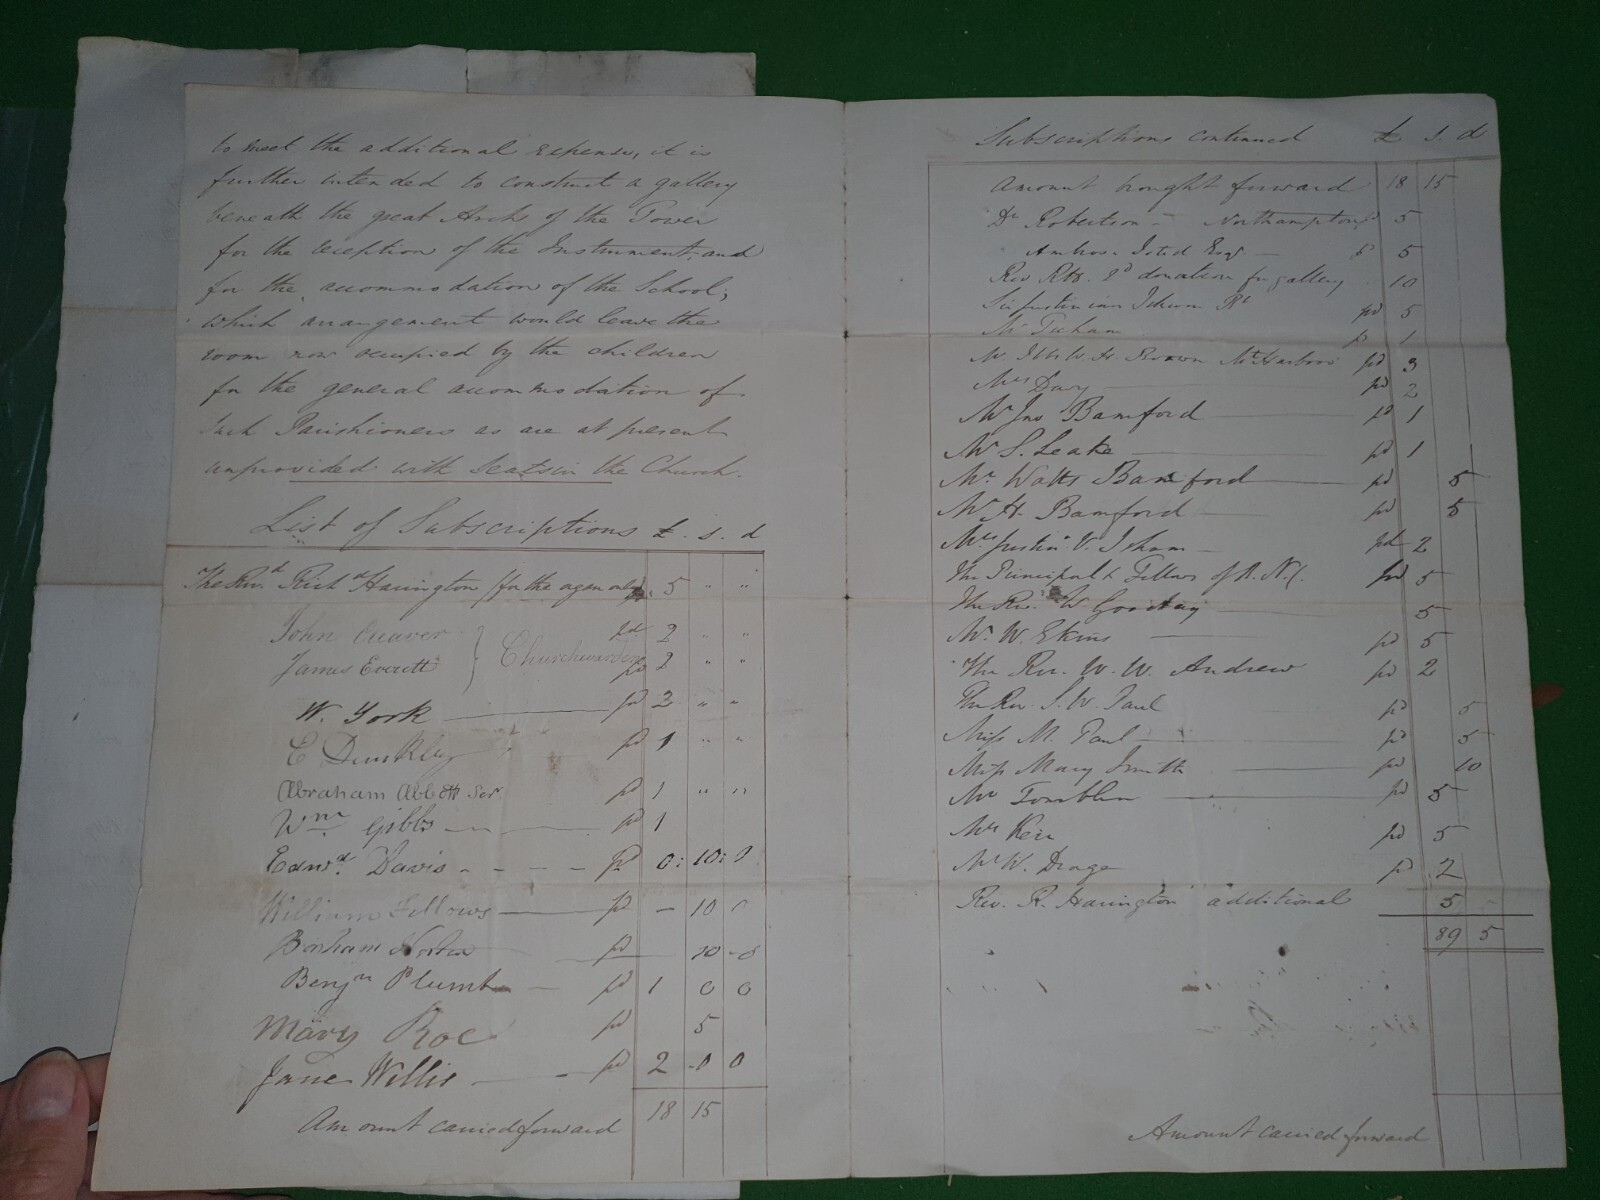 to meet the additional expense, it is
further intended to construct a gallery
beneath the great Arch of the Tower
for the reception of the Instrument, and
for the accommodation of the School;
which arrangement would leave the
room now occupied by the children
for the general accommodation of
such Parishioners as are at present
unprovided with Seats in the Church.
List of Subscriptions £ . s . d
The Revd. Richd Harington (for the organ only) pd. 5 " "
John Cuaver pd 2 " "
Churchwardens
James Everett pd 2 " "
W. York pd 2 " "
E Dunkley pd 1 " "
Abraham Abbott Senr pd 1 " "
Wm. Gibbs pd 1
Edwd. Davis pd 0: 10: 0
William Fellows pd - 10 0
Norton pd 10 - 0
Benjn Plumb pd 1 0 0
Mary Roe pd 5
Jane Willis pd 2 - 0 0
Amount carried forward 18 15
Subscriptions continued £ s. d
Amount brought forward 18 15
Dr Robertson - Northampton pd 5
Ambrose Isted Esqr. p 5
Rev RH. 2d donation for gallery 10
Sir Justinian Isham Bt pd 5
Mr p 1
Mr H. Brown Mt Harboro pd 3
Mrs Davy pd 2
Mr Jno Bamford pd 1
Mr S. Leake pd 1
Mr. Watts Bamford pd 5
Mr H. Bamford pd 5
Mrs Justin. V. Isham pd 2
The Principal & Fellows of B.N.C. pd 5
The Rev. W. Gooday 5
Mr. W. Ekins pd 5
The Rev. W. W. Andrew pd 2
The Rev. S. W. Paul pd 5
Miss M. Paul pd 5
Miss Mary Smith pd 10
Mr Tomblin pd 5
Mrs Keir pd 5
Mr W. Drage pd 2
Rev. R. Harington additional 5
89 5
Amount carried forward